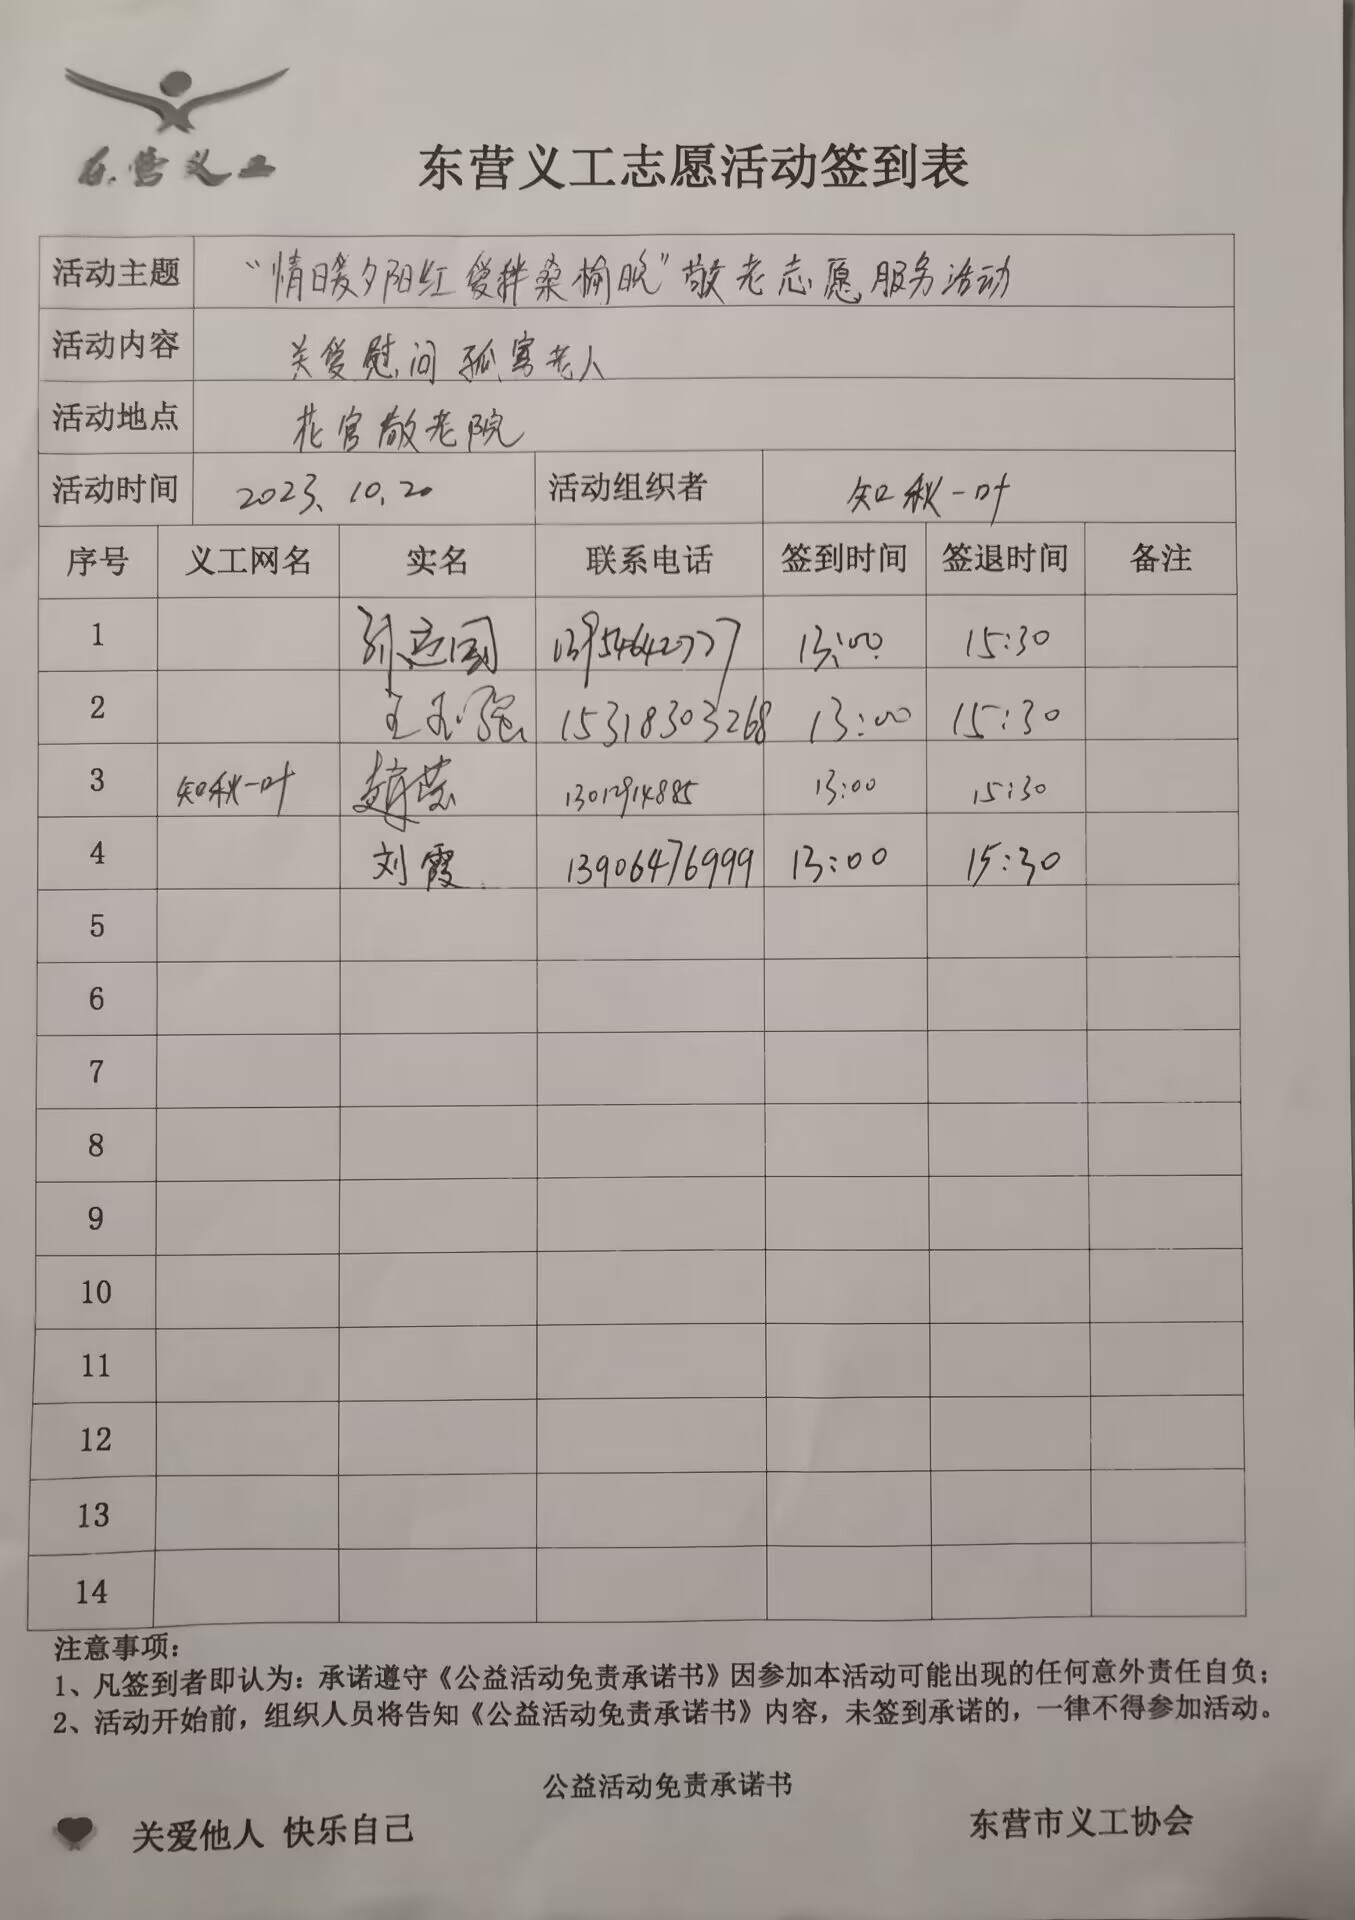 东营义工
东营义工志愿活动签到表
活动主题 “情暖夕阳红 爱拌桑榆晚”敬老志愿服务活动
活动内容 关爱慰问孤寡老人
活动地点 花官敬老院
活动时间 2023.10.20 活动组织者 知秋一叶
序号 义工网名 实名 联系电话 签到时间 签退时间 备注
1 国 13954642777 13:00 15:30
2 王玉强 15318303268 13:00 15:30
3 知秋一叶 赵 13012914885 13:00 15:30
4 刘霞 13906476999 13:00 15:30
5
6
7
8
9
10
11
12
13
14
注意事项:
1、凡签到者即认为:承诺遵守《公益活动免责承诺书》因参加本活动可能出现的任何意外责任自负;
2、活动开始前,组织人员将告知《公益活动免责承诺书》内容,未签到承诺的,一律不得参加活动。
公益活动免责承诺书
关爱他人 快乐自己 东营市义工协会